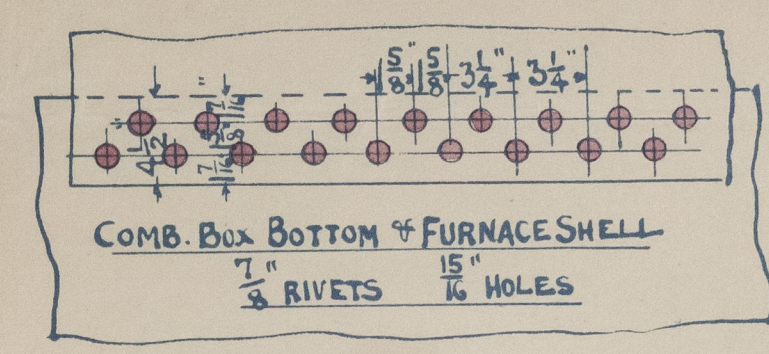 5/8" 5/8 3 1/4" 3 1/4"
4 1/2"
COMB. BOX BOTTOM & FURNACE SHELL
7/8" RIVETS 15/16" HOLES